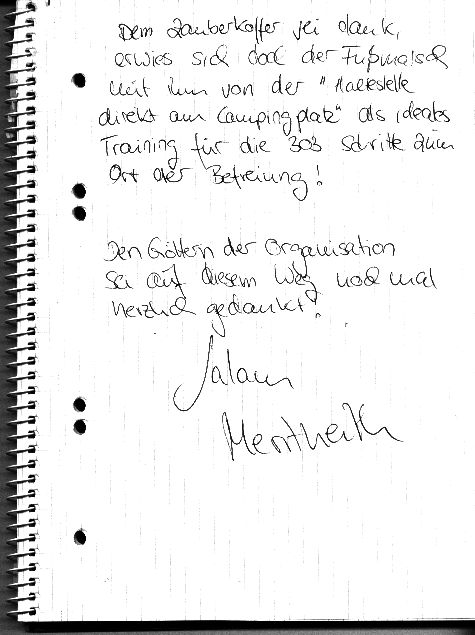 Dem Zauberkoffer sei dank,
erwies sich doch der Fußmarsch
mit ihm von der "Haltestelle
direkt am Campingplatz" als ideales
Training für die 303 Schritte zum
Ort der Befreiung!
Den Göttern der Organisation
sei auf diesem Weg noch mal
herzlich gedankt!
Salam